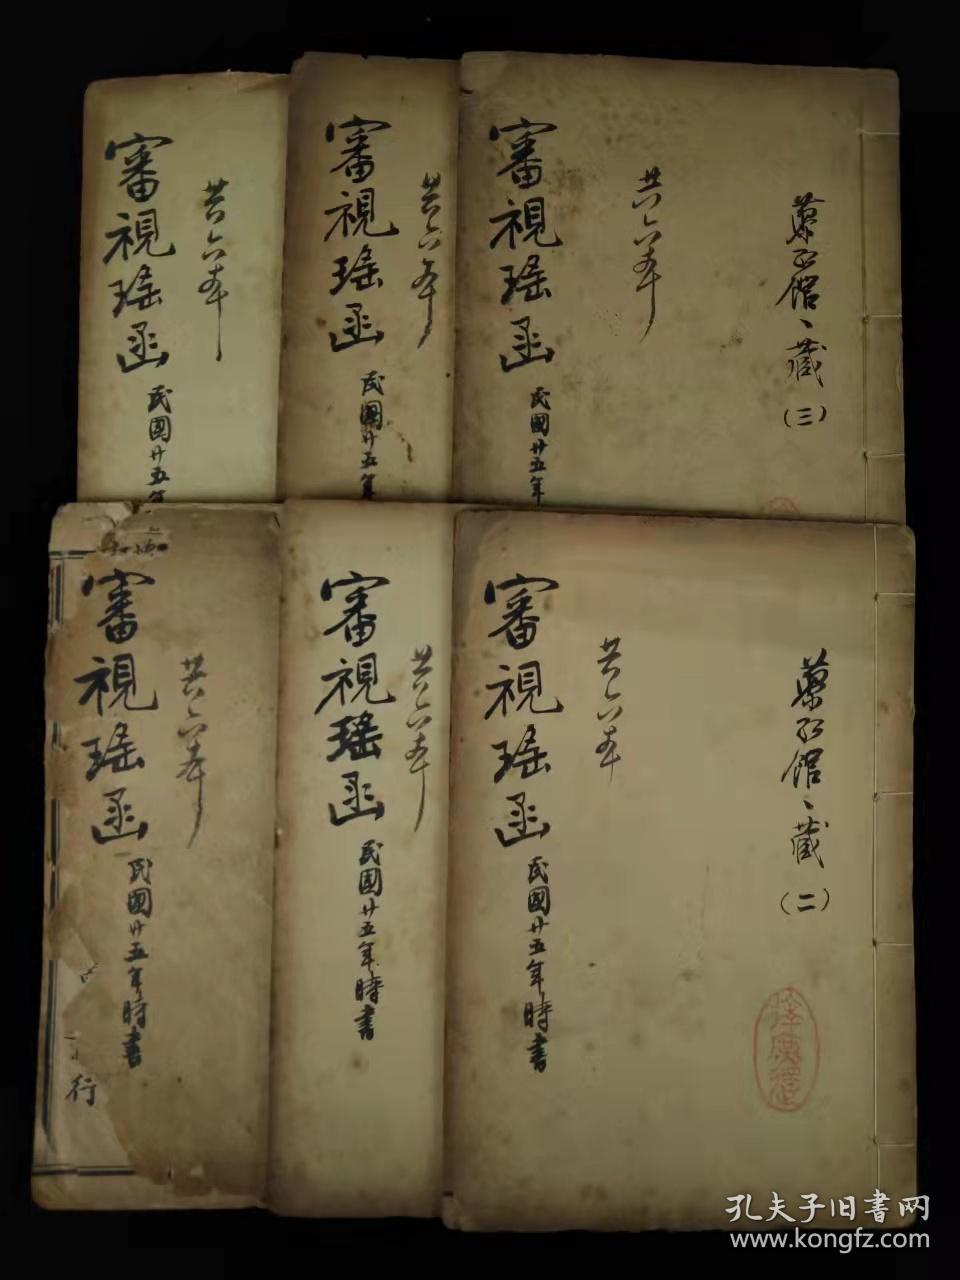 審視瑤函
共六本
民國廿五年
審視瑤函
共六本
民國廿五年
審視瑤函
共六本
民國廿五年
館、藏
(三)
審視瑤函
共六本
民國廿五年時書
行
審視瑤函
共六本
民國廿五年時書
審視瑤函
共六本
民國廿五年時書
館、藏
(二)
孔夫子旧书网
www.kongfz.com